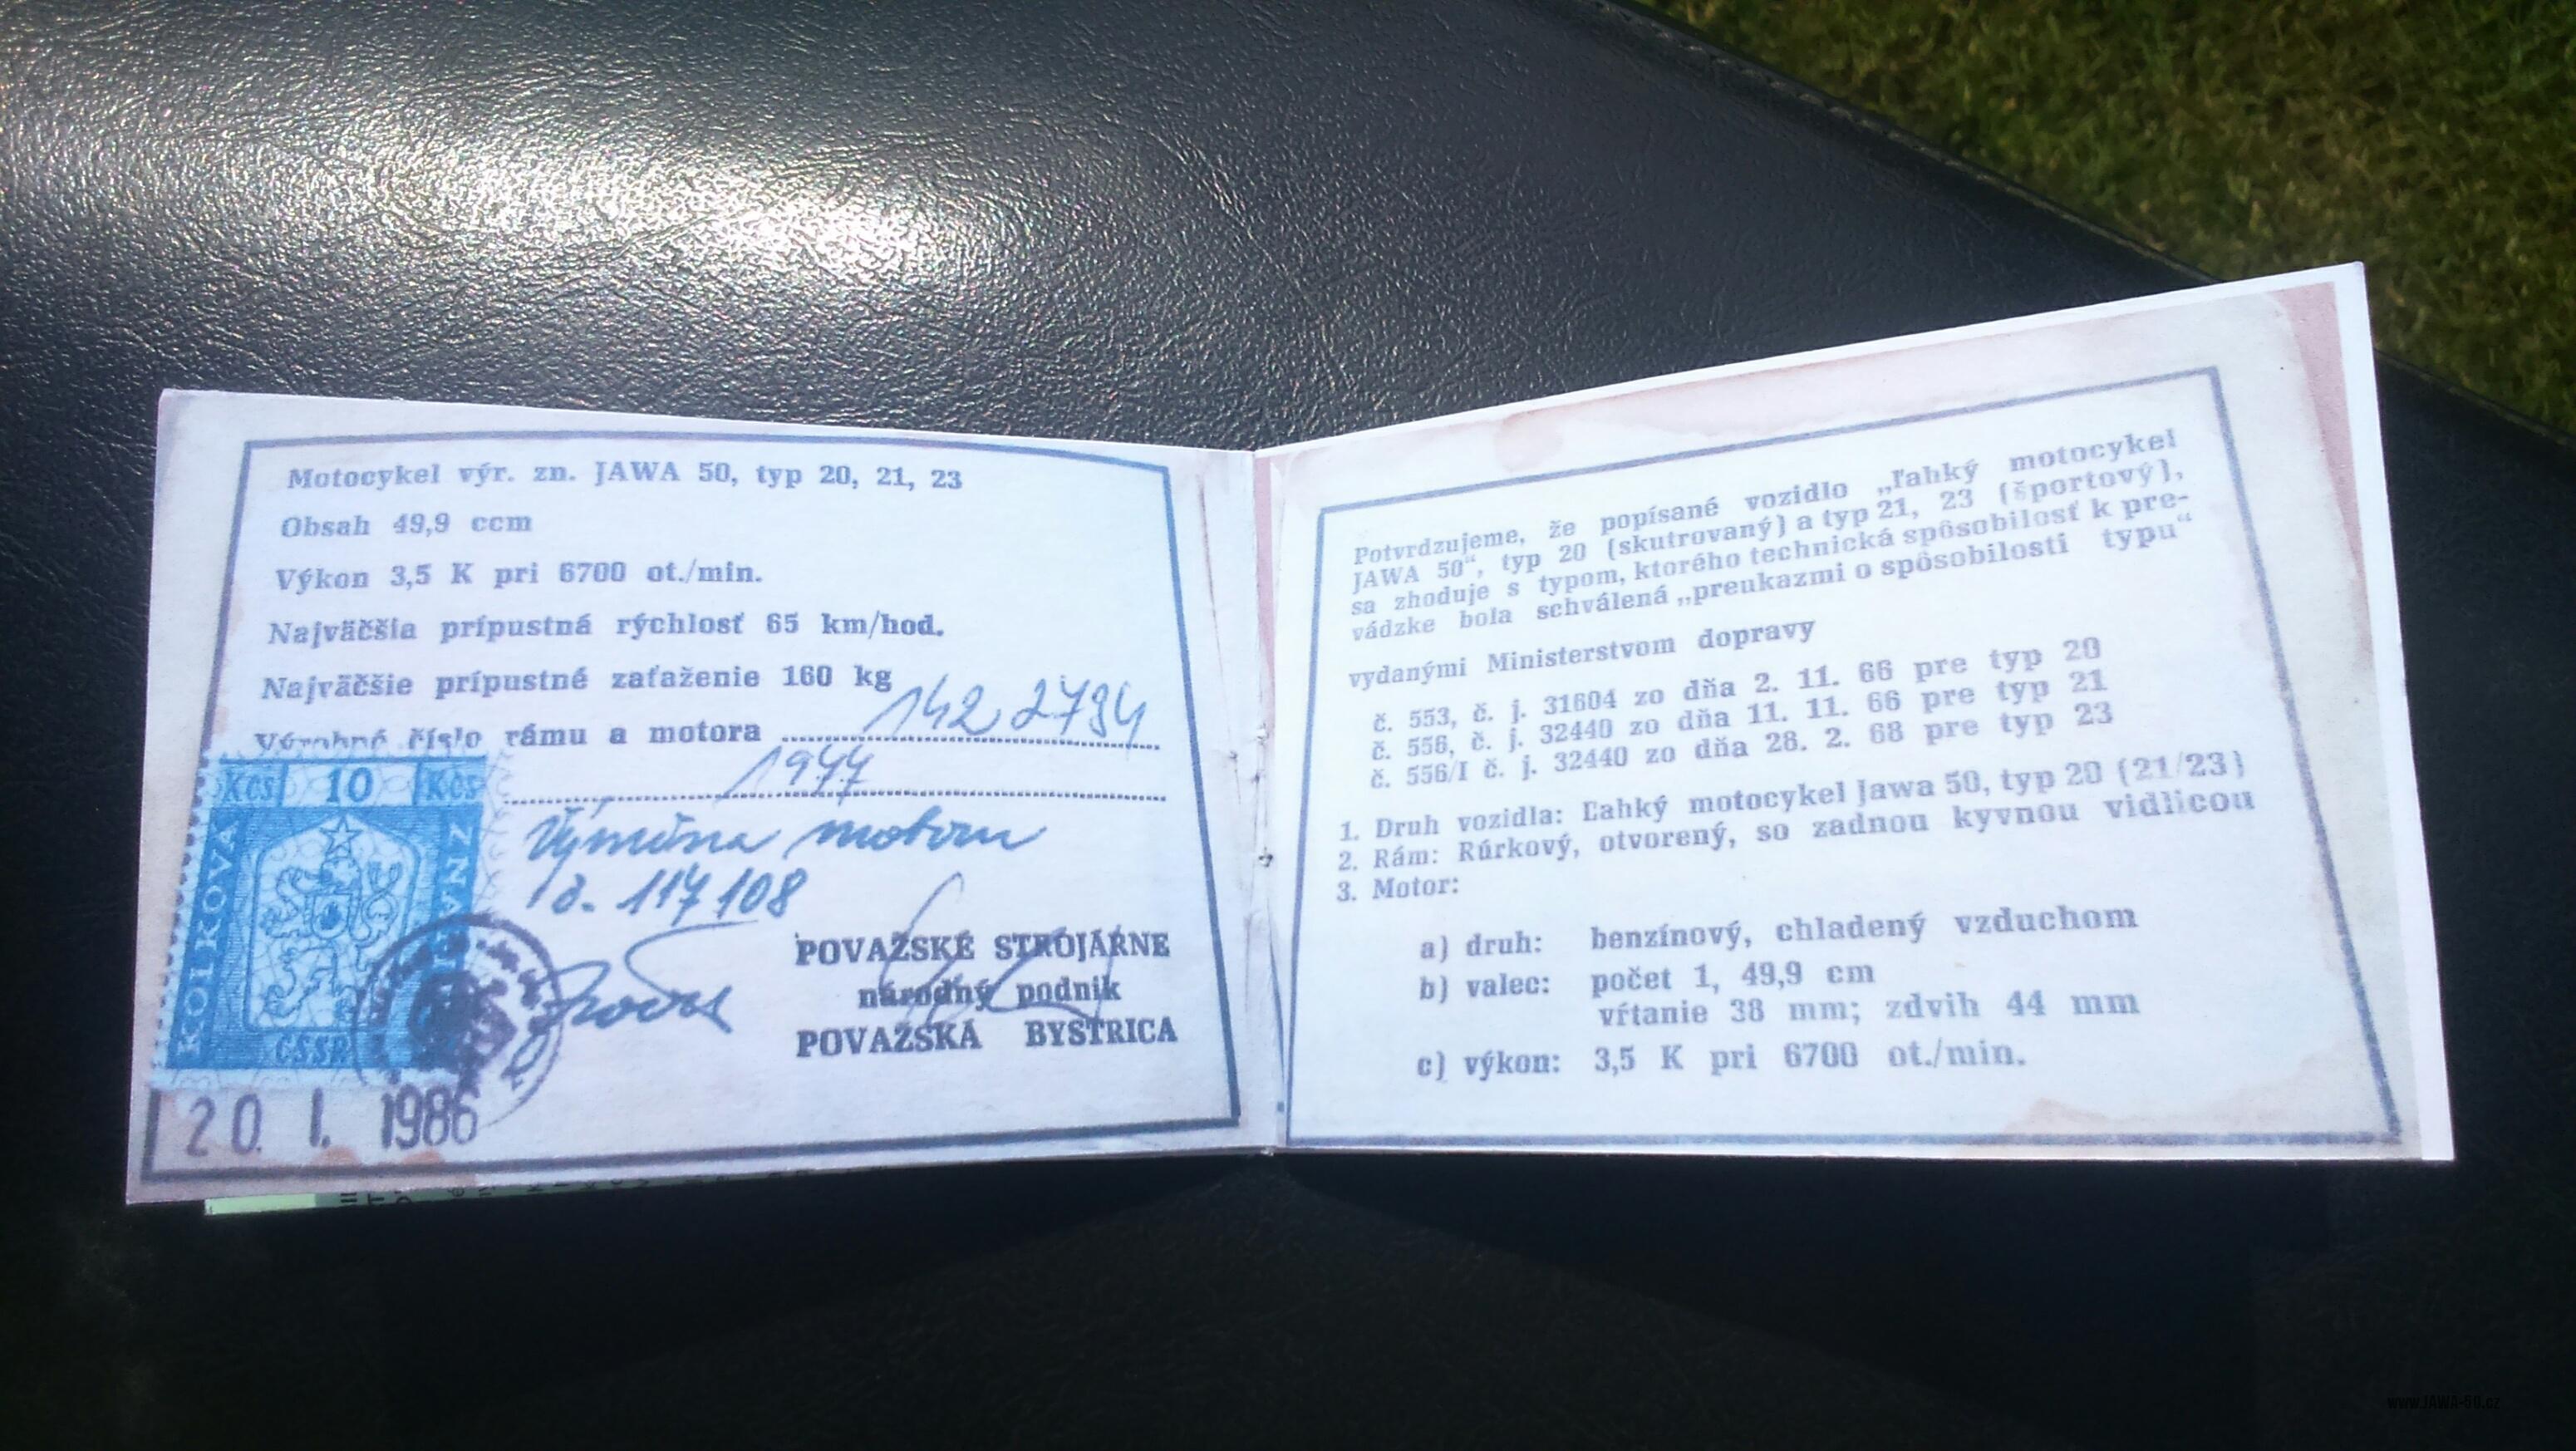 Motocykel výr. zn. JAWA 50, typ 20, 21, 23
Obsah 49,9 ccm
Výkon 3,5 K pri 6700 ot./min.
Najväčšia prípustná rýchlosť 65 km/hod.
Najväčšie prípustné zaťaženie 160 kg
Výrobné číslo rámu a motora 142 2734
1977
Výměna motoru
č. 117108
KČS 10 KČS
KOLKOVÁ
ČSSR
POVAŽSKÉ STROJÁRNE
národný podnik
POVAŽSKÁ BYSTRICA
20. 1. 1986
Potvrdzujeme, že popísané vozidlo „ľahký motocykel
JAWA 50“, typ 20 (skutrovaný) a typ 21, 23 (športový),
sa zhoduje s typom, ktorého technická spôsobilosť k pre-
vádzke bola schválená „preukazmi o spôsobilosti typu“
vydanými Ministerstvom dopravy
č. 553, č. j. 31604 zo dňa 2. 11. 66 pre typ 20
č. 556, č. j. 32440 zo dňa 11. 11. 66 pre typ 21
č. 556/I č. j. 32440 zo dňa 28. 2. 68 pre typ 23
1. Druh vozidla: Ľahký motocykel Jawa 50, typ 20 (21/23)
2. Rám: Rúrkový, otvorený, so zadnou kyvnou vidlicou
3. Motor:
a) druh: benzínový, chladený vzduchom
b) valec: počet 1, 49,9 cm
vŕtanie 38 mm; zdvih 44 mm
c) výkon: 3,5 K pri 6700 ot./min.
www.JAWA-50.cz